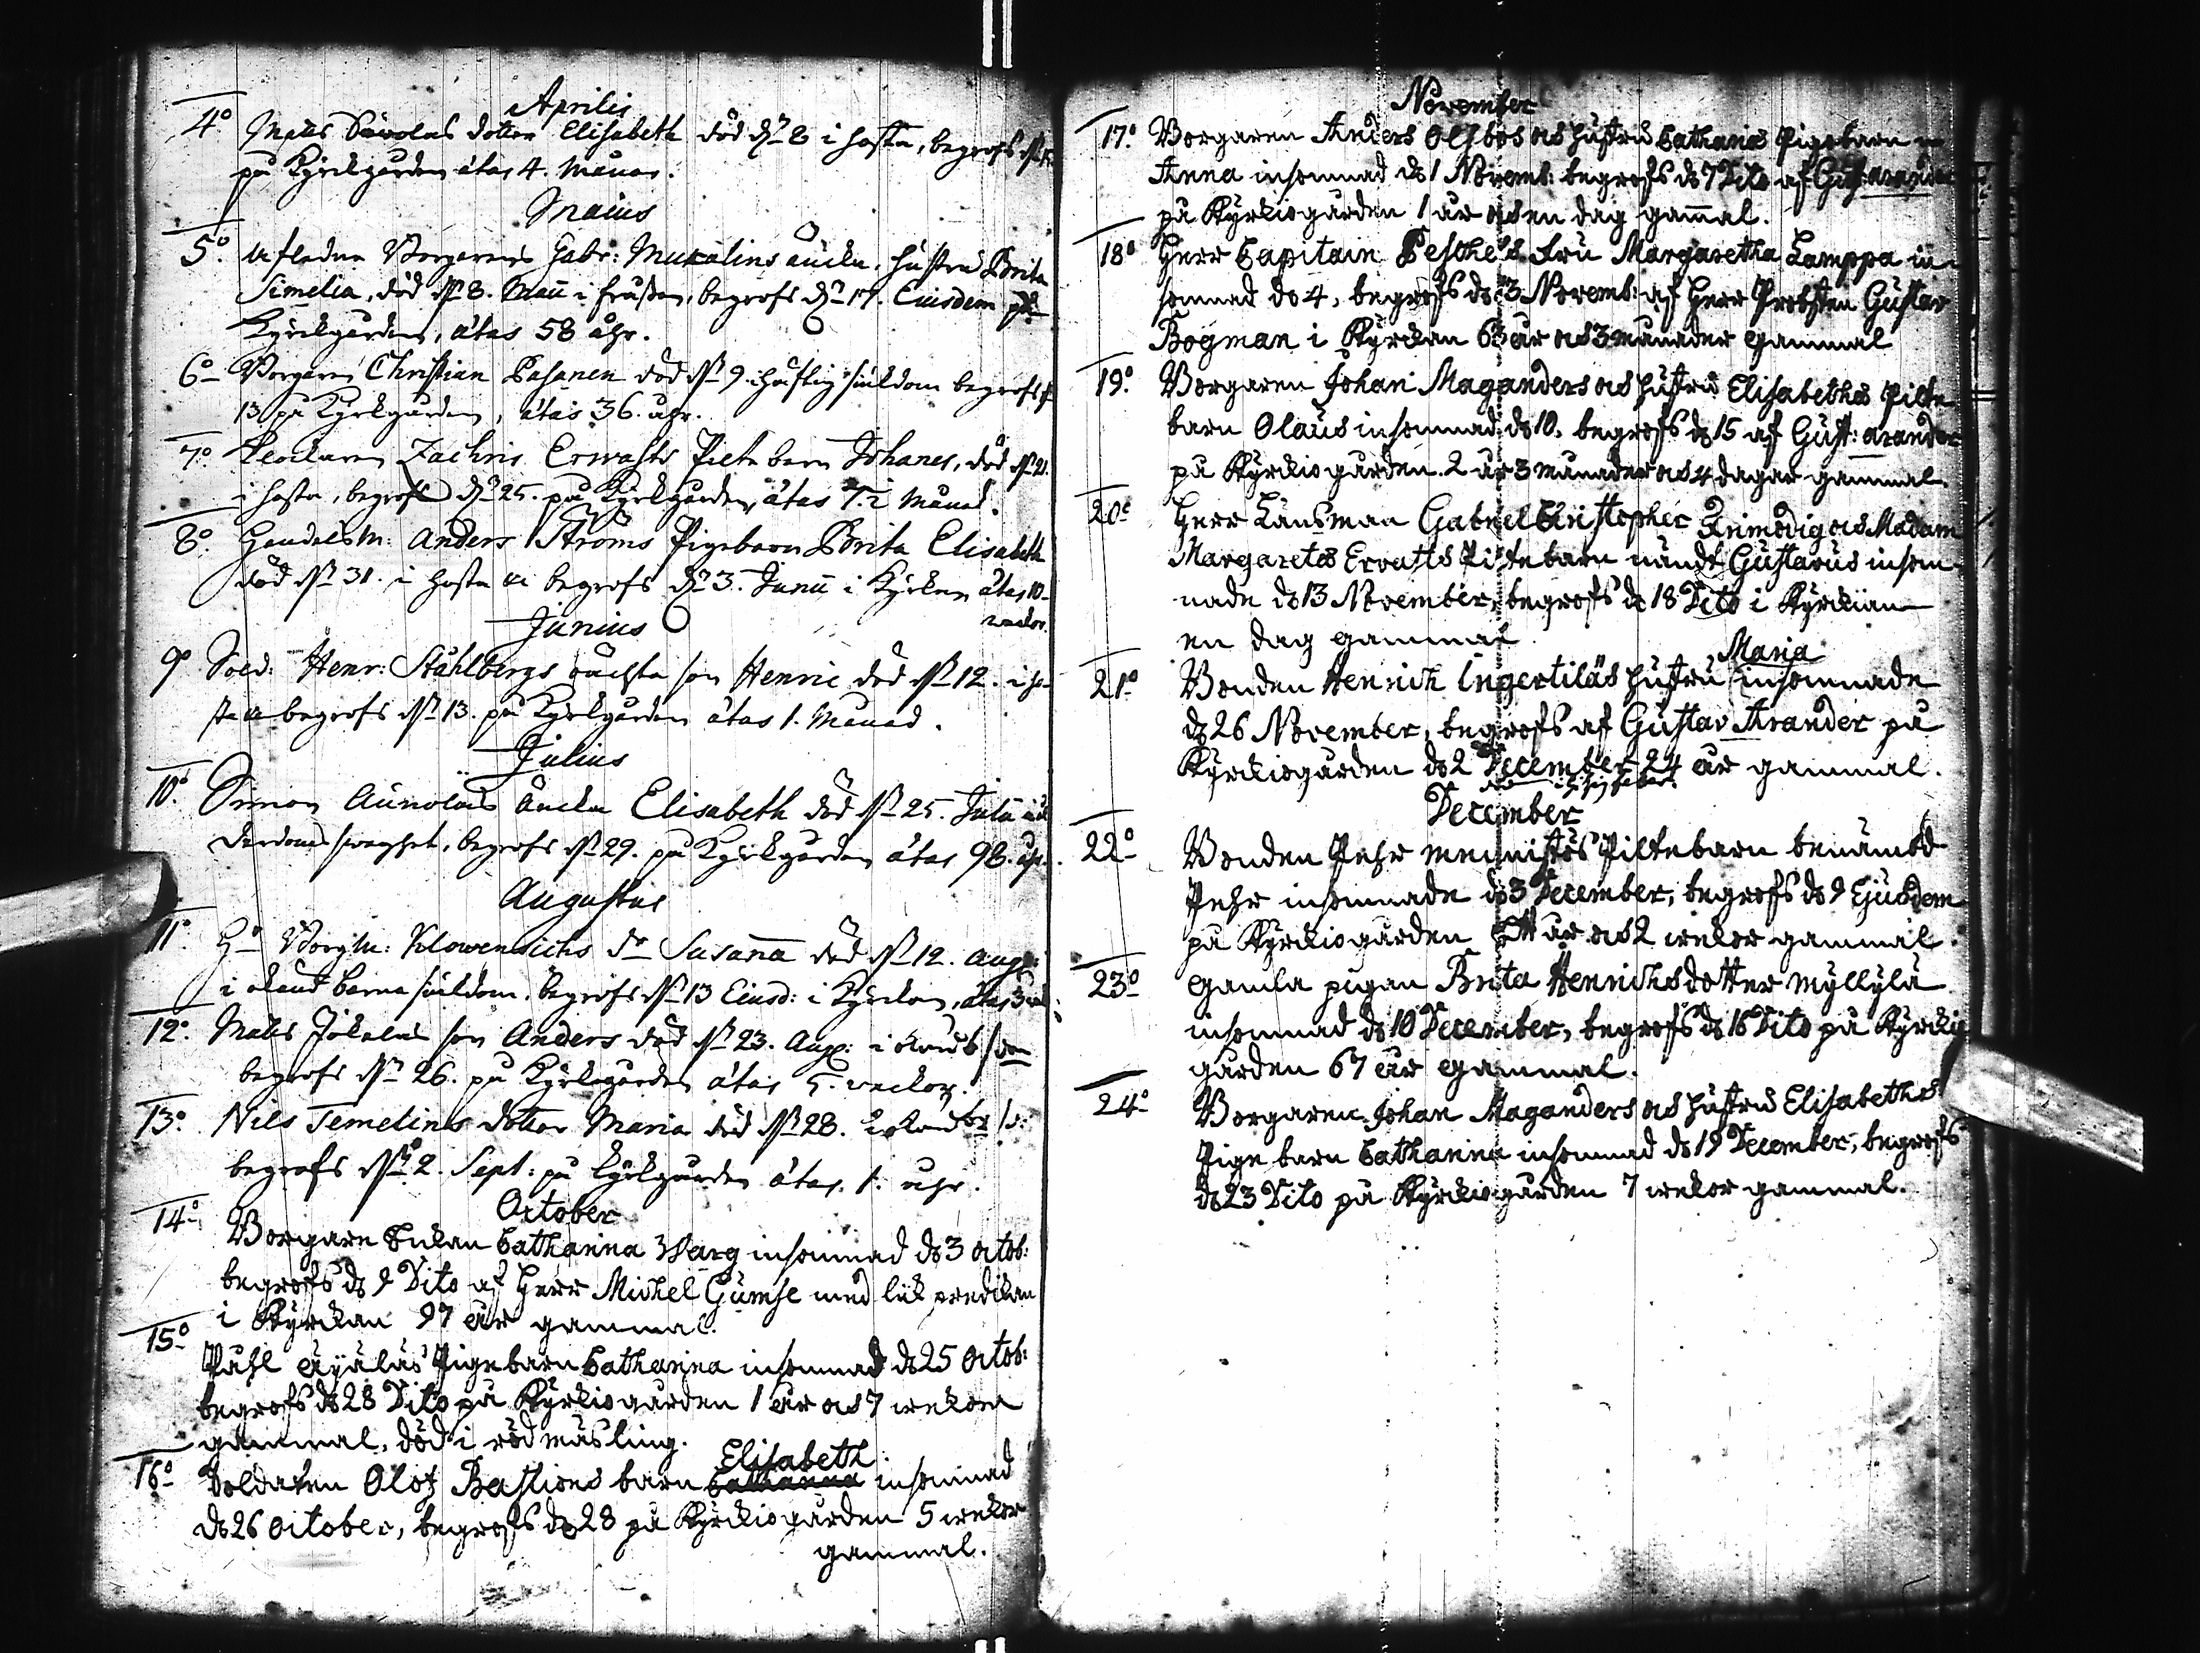 Aprilis
4o Matts Savolas dotter Elisabeth död dn 8 i hosta, begrofs dn
på Kyrkgården ätas 4. Månar.
Maius
5o. Afledne Borgarens Gabr: Mukalins äncka, hustru Brita
Simelia, död dn 8. Maii i fraßen, begrofs dn 17. Eiusdem på
Kyrckgården, ätas 58 åhr.
6o Borgaren Christian Pasanen död dn 9. i häftig siukdom begrofs
13 på Kyrkgården, ätas 36. åhr.
7o. Klockaren Zachris Erwasts Pilte barn Johanes, död dn 21.
i hosta, begrofs dn 25. på Kyrkgården, ätas Månad.
8o. Handelsm: Anders Ströms Pigebarn Brita Elisabeth
död dn 31. i hosta begrofs dn 3. Junii i Kyrkan ätas 10
weckor.
Junius
9o Sold: Henr: Ståhlbergs son Henric död dn 12. i ho-
sta begrofs dn 13. på Kyrkgården ätas 1. Månad.
Julius
10o. Simon Aunolas äncka Elisabeth död dn 25. Julii
derdoms swaghet, begrofs dn 29. på Kyrkgården ätas 98. åhr.
Augustus
11o. Borgm: Klowensichs dr Susanna död dn 12. Aug:
i okänd barnasiukdom, begrofs dn 13 Eiusd: i Kyrckan, ätas
12o. Matts Jokelas son Anders död dn 23. Aug: i
begrofs dn 26. på Kyrkogården ätas 5. veckor.
13o. Nils Temelins dotter Maria död dn 28.
begrofs dn 2. Sept: på Kyrkgården ätas 1. åhr.
October
14o Borgare Enkan Catharina Warg insomnad d: 3 octob:
begrofs d: 9 Dito af Herr Michel Gumse med lik predikan
i Kyrckan 97 år gammal.
15o Påhl äyäläs Pigebarn Catharina insomnad d: 25 octob:
begrofs d: 28 Dito på Kyrkiogården 1 år och 7 wekors
gammal, död i röd mäsling.
Elisabeth
16o Soldaten Olof Bastions barn Catharina insomnad
d: 26 october, begrofs d: 28 på Kyrckiogården 5 wekor
gammal.
November
17o. Borgaren Anders och hustru Catharias Pigebarn
Anna insomnad d: 1 Novemb: begrofs d: 7 Dito af Gust: arander
på Kyrkiogården 1 år och en dag gammal.
18o Herr Capitain Pesche's Fru Margaretha Lamppa in-
somnad d: 4, begrofs d: 13 Novemb: af Herr Probsten Gustav
Bogman i Kyrckan 63 år och 3 månader gammal
19o. Borgaren Johan Maganders och hustru Elisabeths Pilte
barn Olaus insomnad d: 10, begrofs d: 15 af Gust: arander
på Kyrckio gården. 2 år 3 månader och 4 dagar gammal.
20o Herr Länsman Gabriel Christopher Frimodig och Madam
Margareta Ervasts Piltebarn nämdt Gustavus insom-
nade d: 13 November, begrofs d: 18 Dito i Kyrckian
en dag gammal
Maria
21o Bonden Henrich Ingertiläs hustru insomnade
d: 26 November, begrofs af Gustav Arander på
Kyrckiogården d: 2 December 24 år gammal.
December
22o Bonden Pehr mennistös Piltebarn benämbd
Pehr insomnade d: 3 December, begrofs d: 9 Ejusdem
på Kyrckiogården Ett år och 2 wekor gammal.
23o gamla pigan Brita Henrichsdotter myllylä
insomnad d: 10 December, begrofs d: 16 Dito på Kyrckio
gården 67 år gammal.
24o Borgaren Johan Maganders och hustru Elisabeths
Pige barn Catharina insomnad d: 19 December, begrofs
d: 23 Dito på Kyrckiogården 7 wekor gammal.